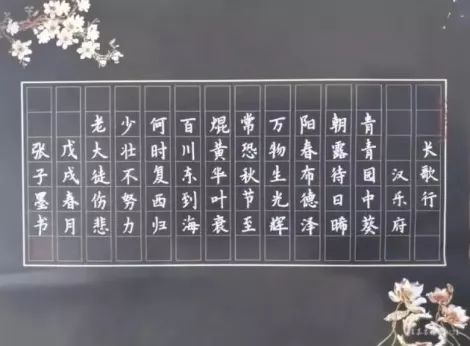 长歌行
汉乐府
青青园中葵
朝露待日晞
阳春布德泽
万物生光辉
常恐秋节至
焜黄华叶衰
百川东到海
何时复西归
少壮不努力
老大徒伤悲
戊戌春月
张子墨书